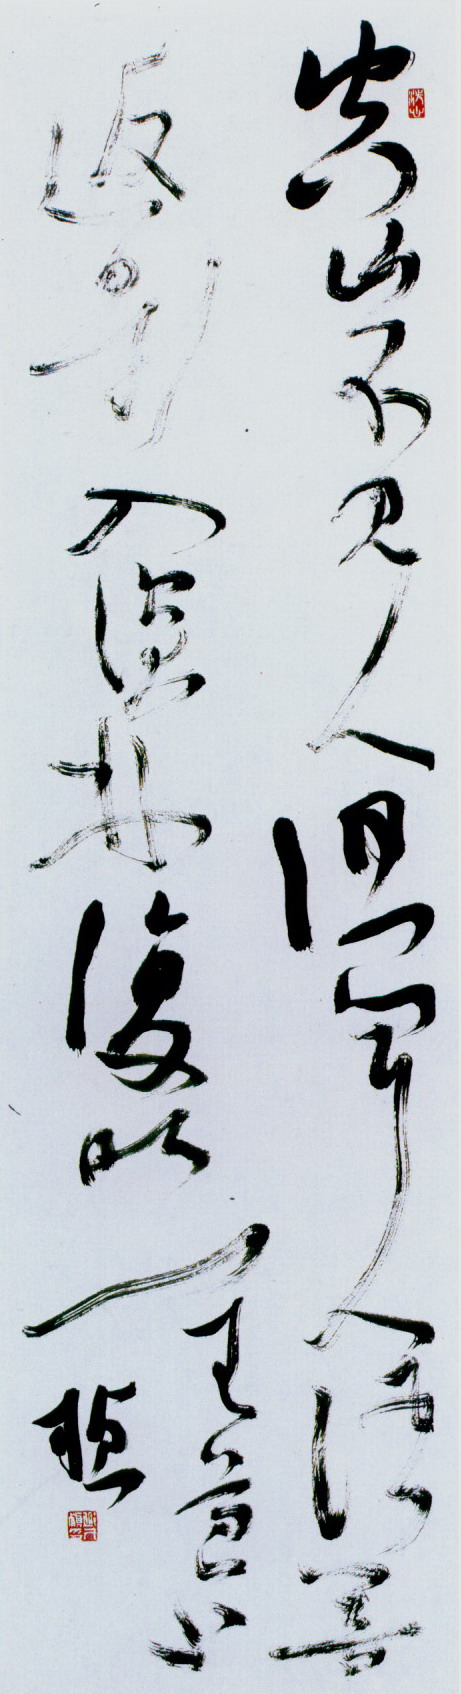 空山不見人但聞人語響
返影入深林復照青苔上